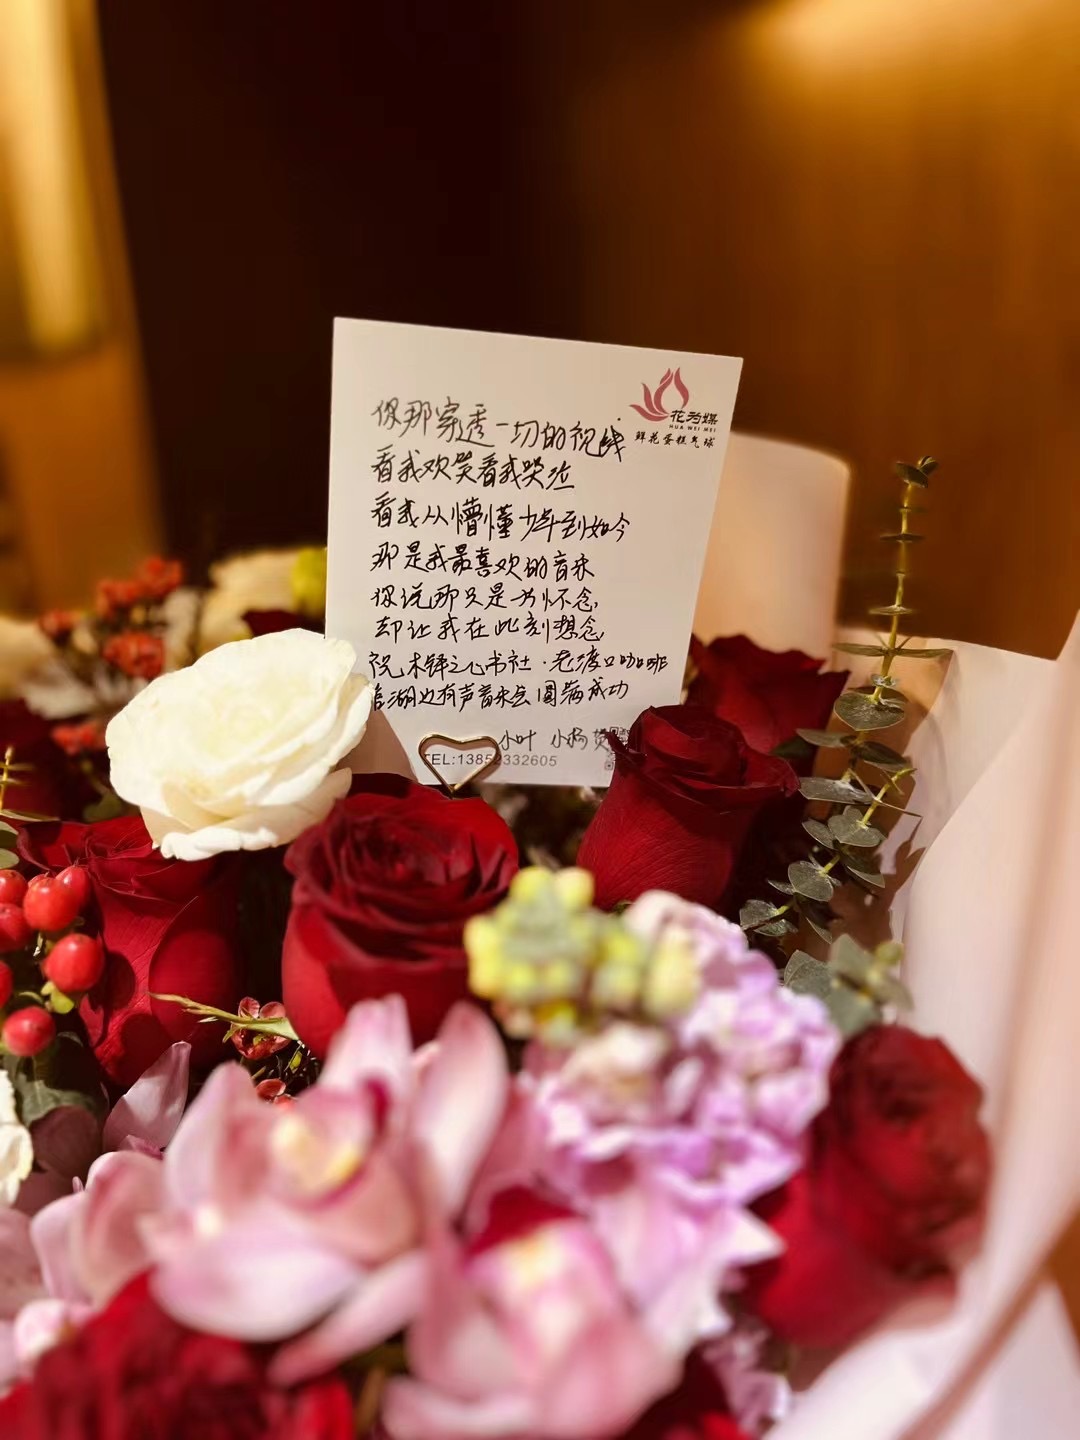 花为媒
HUA WEI MEI
鲜花蛋糕气球
你那穿透一切的视线
看我欢笑看我哭泣
看我从懵懂少年到如今
那是我最喜欢的音乐
你说那只是为怀念,
却让我在此刻想念,
祝木铎之心书社·老渡口咖啡
湖边有声音乐会圆满成功
小叶 小杨 贺
TEL:13852332605